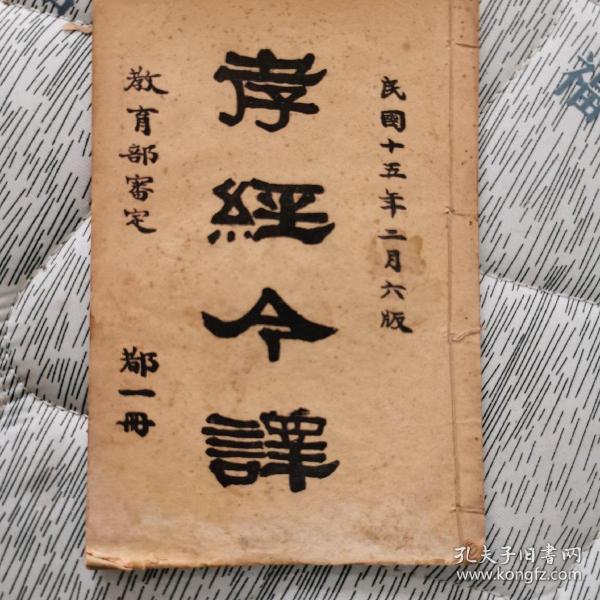 民國十五年二月六版
孝經今譯
教育部審定
都一冊
福
孔夫子旧书网
www.kongfz.com